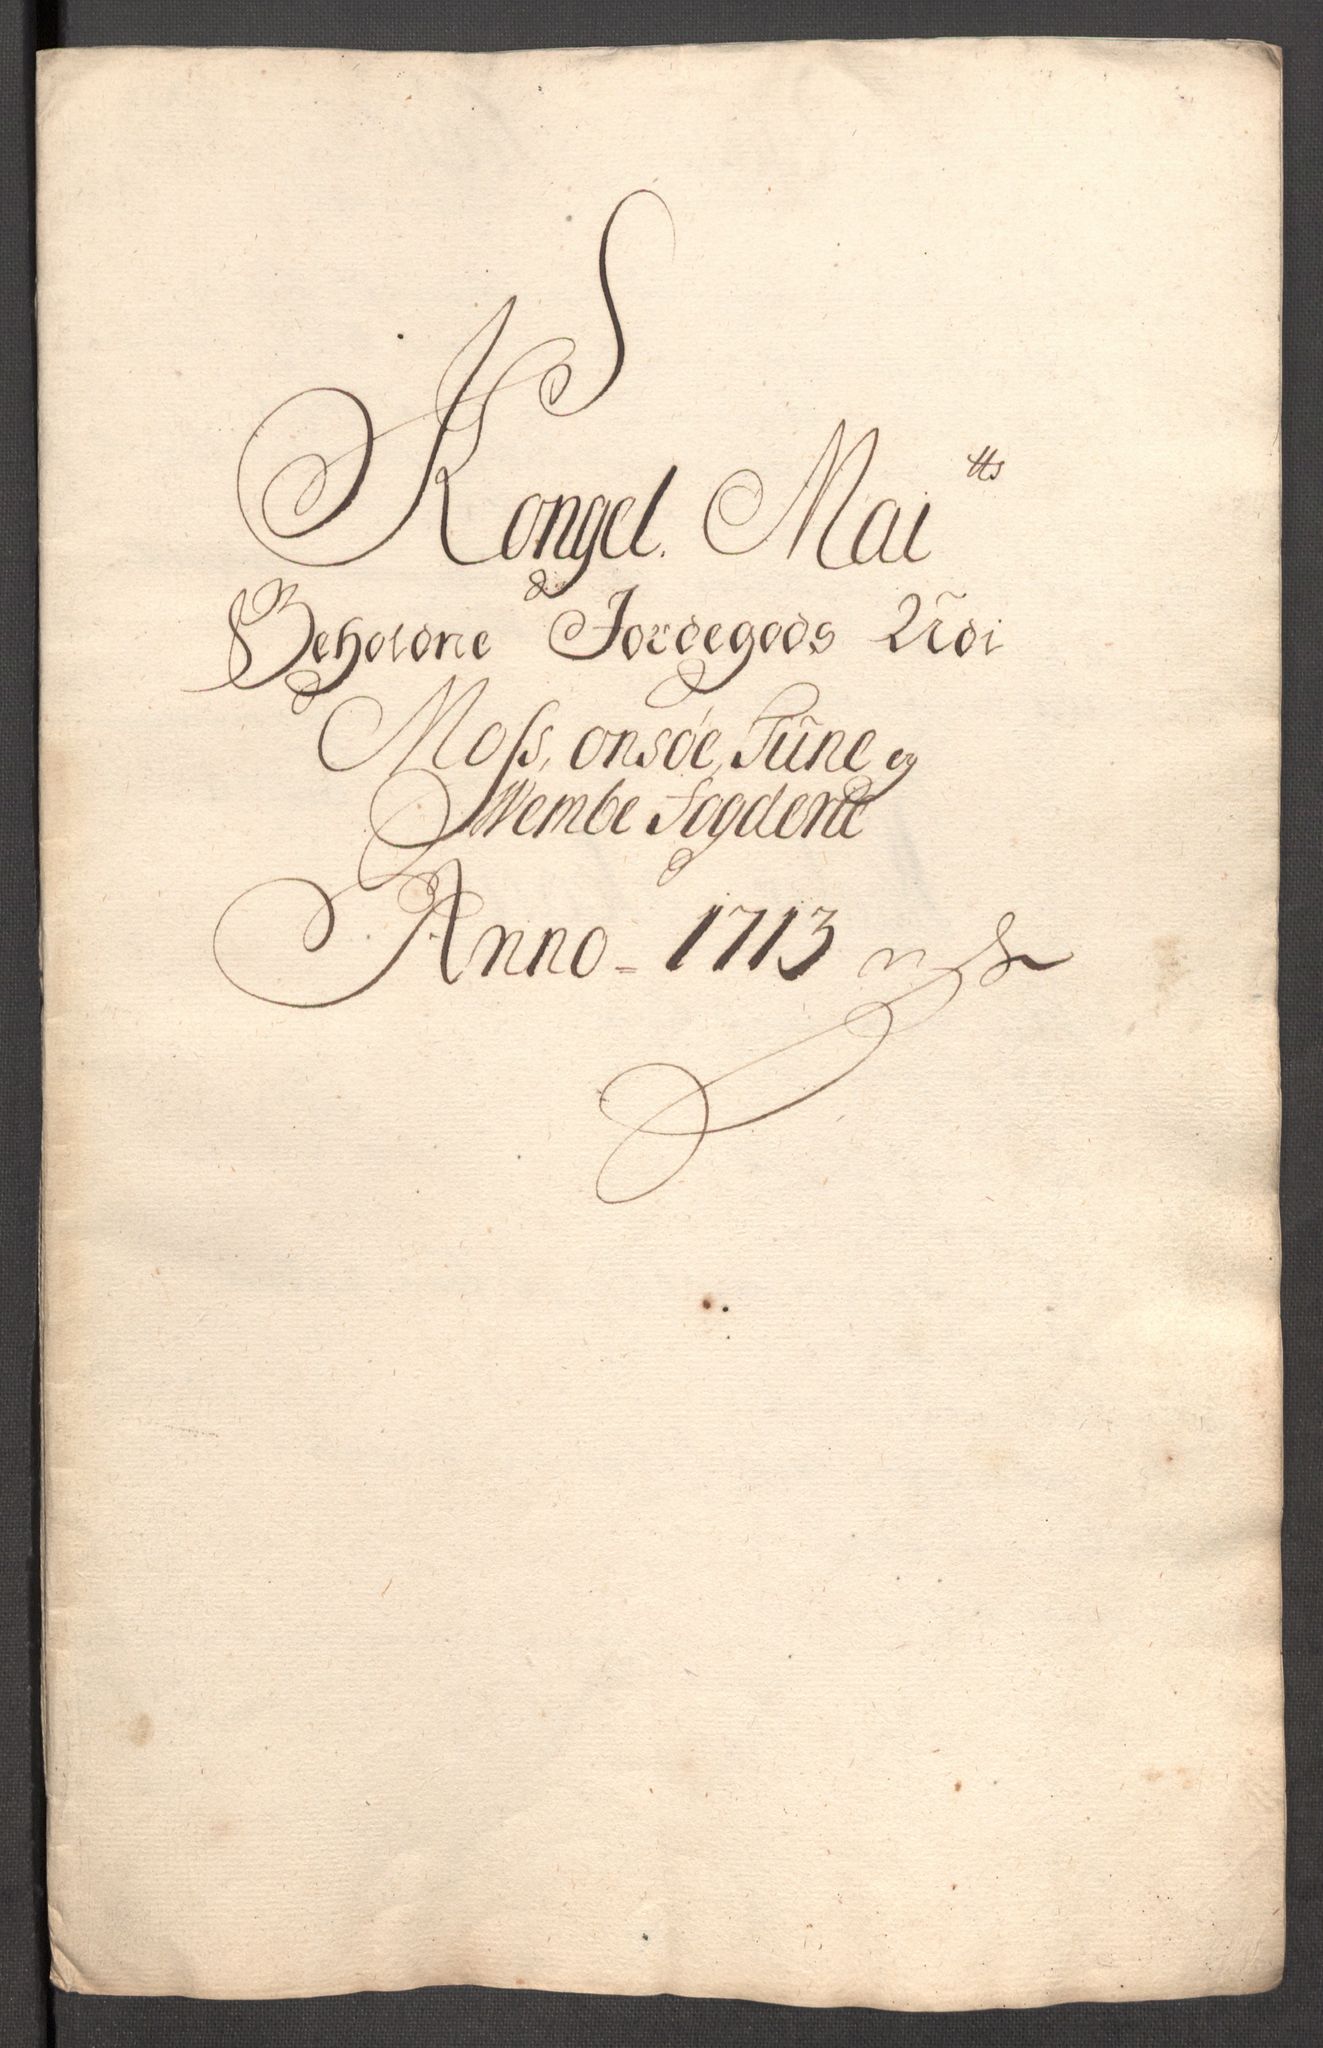 Kongel. Mai tts
Beholdne Jordegods Udi
Moss, onsøe, Tune og
Wembe Fogderie
Anno - 1713